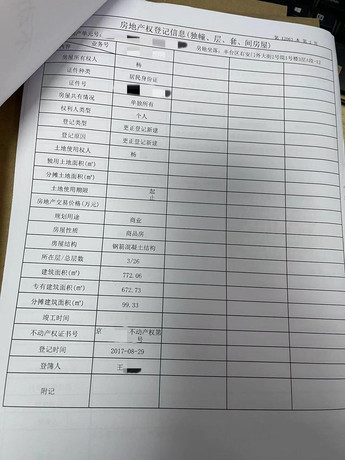 房地产权登记信息(独幢、层、套、间房屋)
业务号
房屋所有权人 杨
证件种类 居民身份证
证件号
房屋共有情况 单独所有
权利人类型 个人
登记类型 更正登记新建
登记原因 更正登记新建
土地使用权人 杨
独用土地面积(㎡)
分摊土地面积(㎡)
土地使用期限 起 止
房地产交易价格(万元)
规划用途 商业
房屋性质 商品房
房屋结构 钢筋混凝土结构
所在层/总层数 3/26
建筑面积(㎡) 772.06
专有建筑面积(㎡) 672.73
分摊建筑面积(㎡) 99.33
竣工时间
不动产权证书号 京 不动产权第 号
登记时间 2017-08-29
登簿人 王
附记